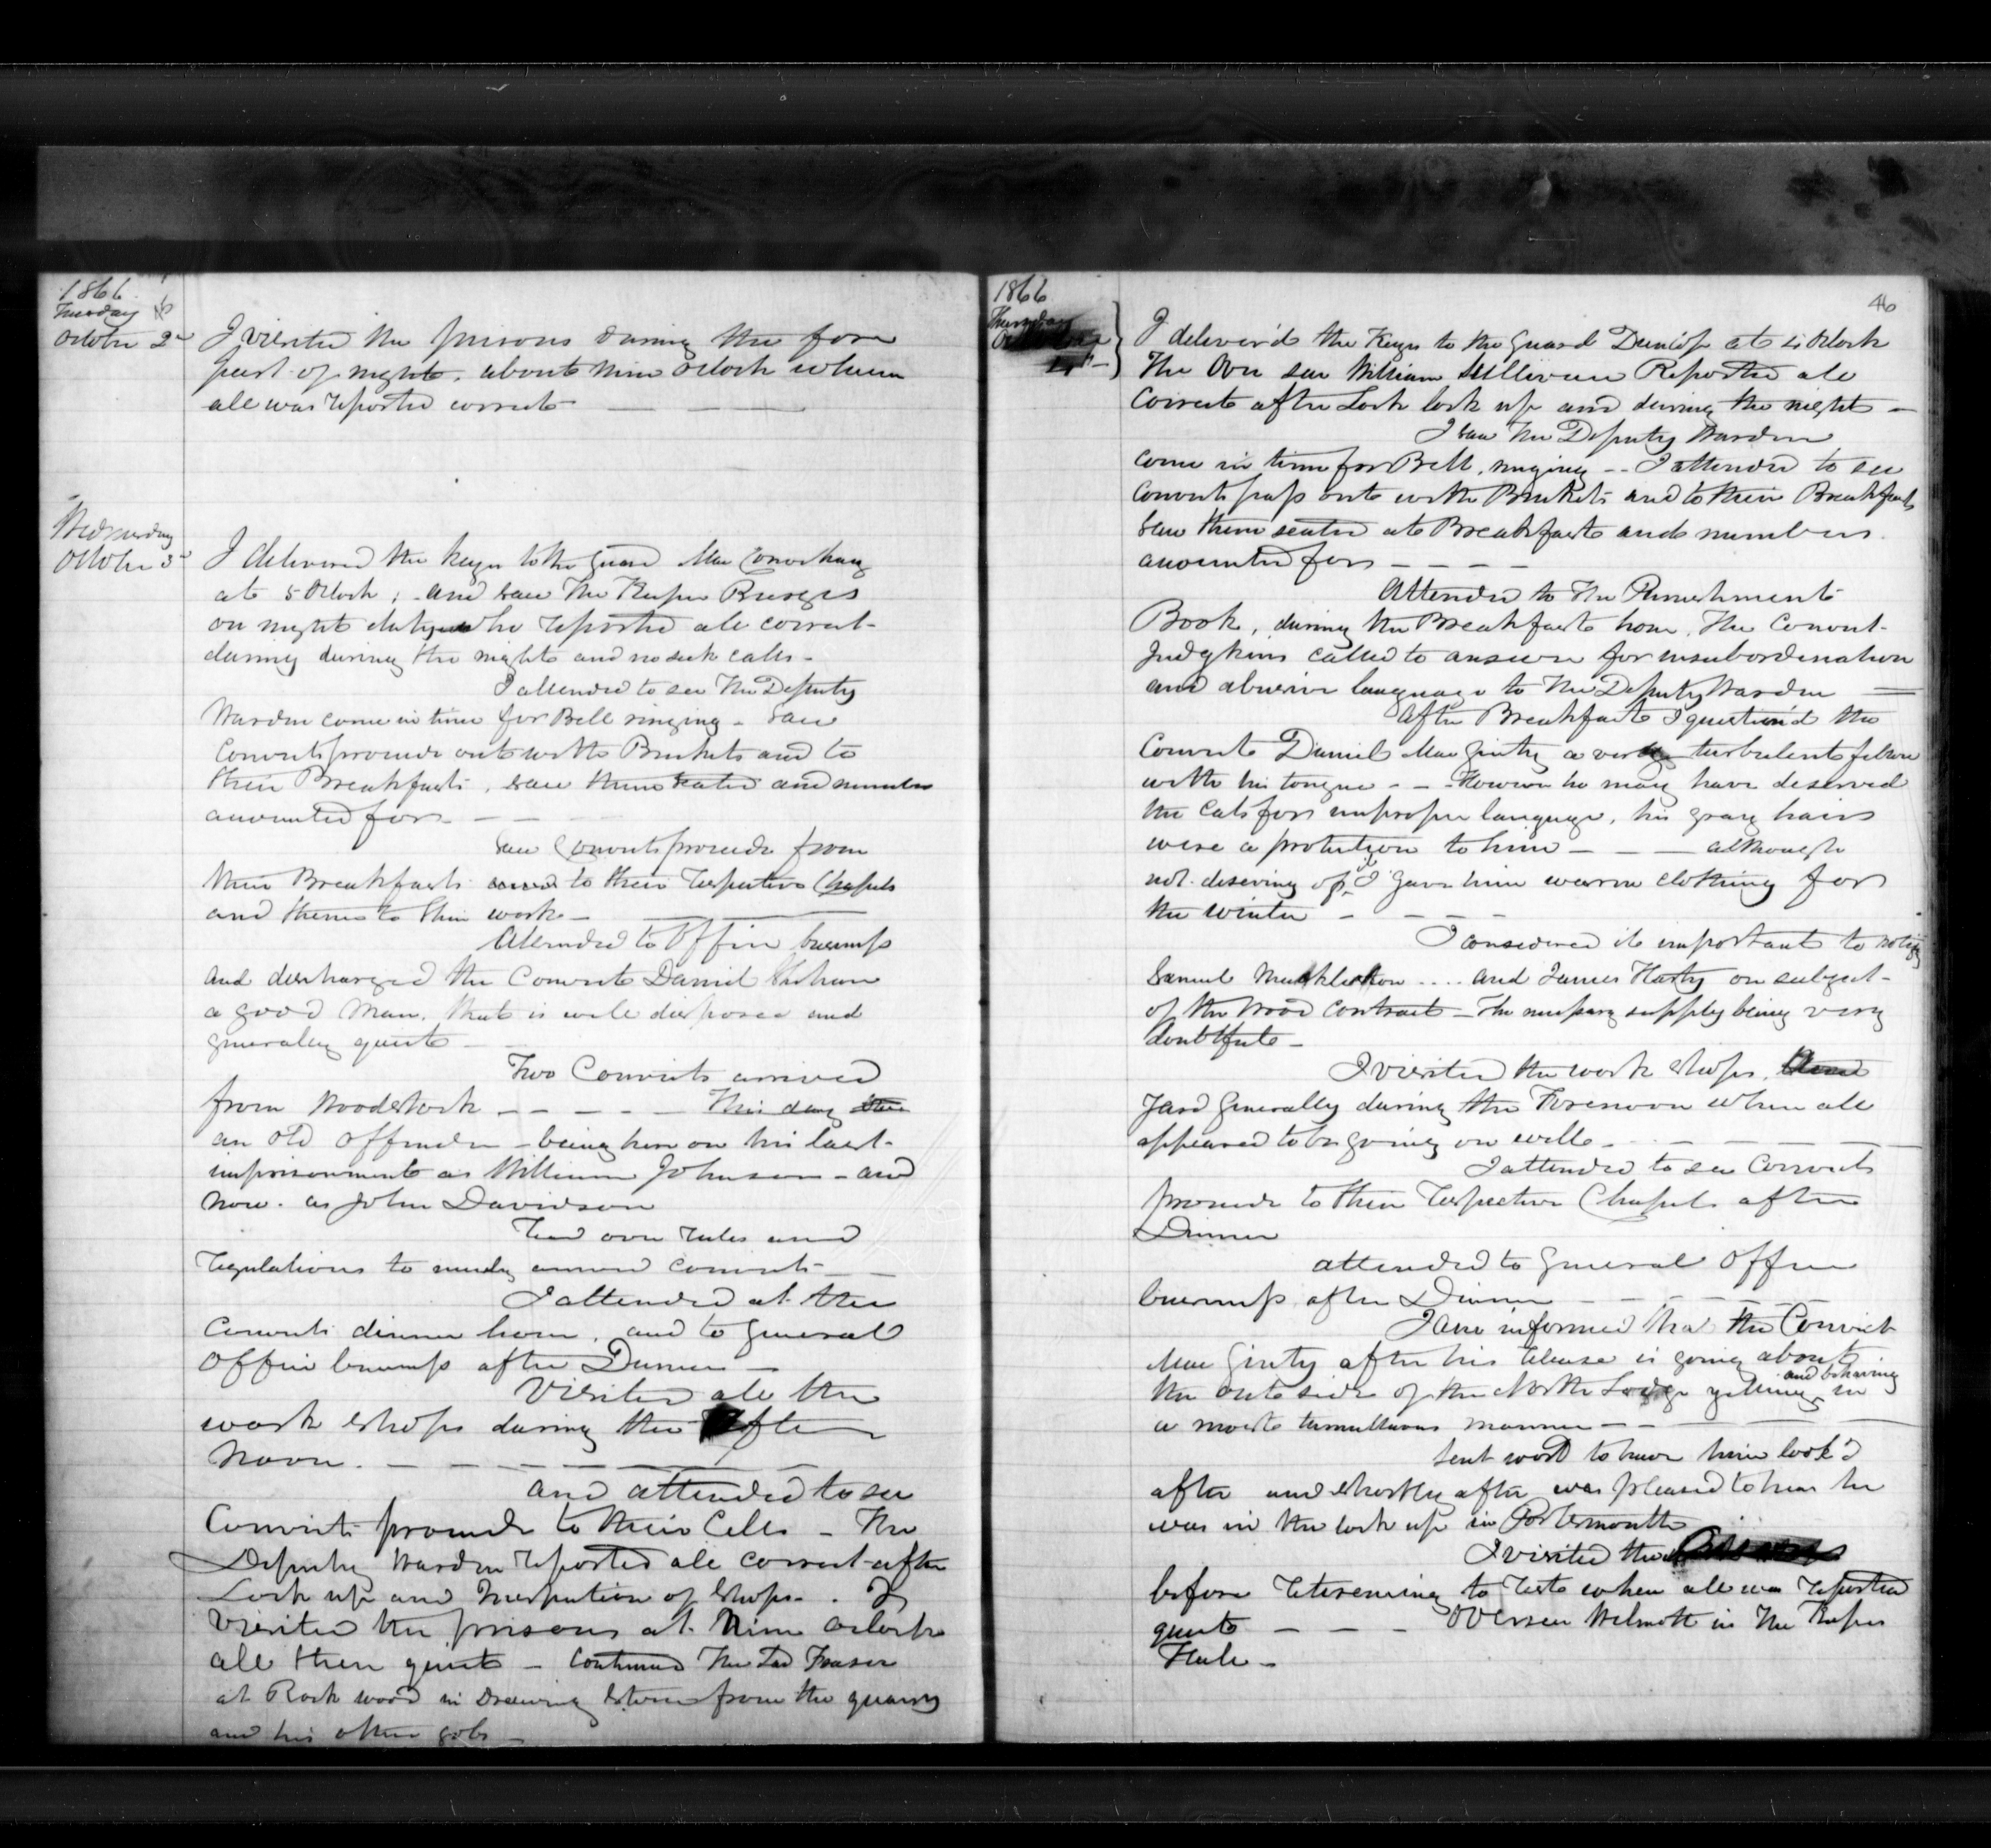 1866
Tuesday
October 2d
I visited the prisons during the fore
part of night, about nine oclock when
all was reported correct
Wednesday
October 3d
I delivered the keys to the guard Mac
at 5 Oclock; and saw The Keeper Burgess
on night duty who reported all correct
during during the night and no sick calls -
I attended to see The Deputy
Warden come in time for Bell ringing - saw
Convicts proceed out with Buckets and to
their Breakfast, saw them seated and numbers
accounted for -
Saw Convicts proceed from
their Breakfast to their respective Chapels
and thence to their work -
Attended to Office business
and discharged the Convict Daniel
a good man, that is well disposed and
generally quiet -
Two Convicts arrived
from Woodstock - - - - - This day
an old offender - being here on his last
imprisonment as William Johnson - and
now as John Davidson
Read over rules and
regulations to newly arrived convicts -
I attended at the
Convicts dinner hour, and to general
Office business after Dinner -
Visited all the
work shops during the after
noon. - - - - -
and attended to see
Convicts proceed to their Cells - The
Deputy Warden reported all correct after
Lock up and Inspection of shops. I
visited the prisons at Nine oclock
all then quiet - Continued The Lad Fraser
at Rock wood in Drawing stone from the quarry
and his other jobs -
1866
46
Thursday
4th
I deliver'd the Keys to the guard Dunlop at 5 Oclock
The Over seer William Sullivan Reported all
Correct after Lock lock up and during the night -
I saw The Deputy Warden
come in time for Bell ringing - - I attended to see
Convicts pass out with Buckets and to their Breakfast
saw them seated at Breakfast and numbers
accounted for - - - -
Attended to The Punishment
Book, during the Breakfast hour, The Convict
Judgkins called to answer for insubordination
and abusive language to The Deputy Warden
After Breakfast I question'd the
Convict Daniel MacGinty a very turbulent fellow
with his tongue - - However he may have deserved
the Cats for improper language, his gray hairs
were a protection to him - - - although
not deserving of it I gave him warm clothing for
the winter - - - -
I considered it important to notify
Samuel .... and James Harty on subject
of the Wood Contract - The necessary supply being very
doubtful -
I visited the work shops,
Yard generally during the Forenoon when all
appeared to be going on well -
I attended to see Convicts
proceed to their respective Chapels after
Dinner
attended to general Office
business after Dinner - - - - -
I am informed that the Convict
MacGinty after his release is going about
the out side of the North Lodge yelling and behaving in
a most tumultuous manner - -
Sent word to have him look'd
after and shortly after was pleased to hear he
was in the lock up in Portsmouth
I visited the
before retireing to rest when all was reported
quiet - - - Overseer Wilmott in The Keepers
Hall -